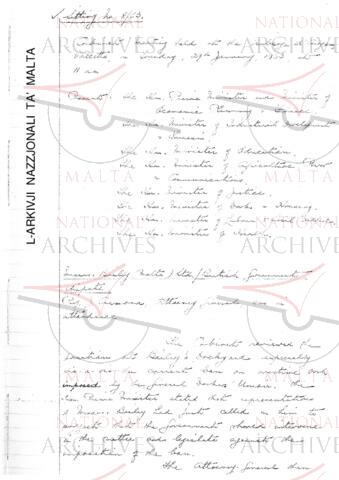 Sitting No.
Cabinet Meeting held at the
Valletta, on Tuesday, 29th January, at
11 a.m.
Present: The Hon. Prime Minister and Minister of
Economic Planning
The Hon. Minister of Industrial Development
& Tourism.
The Hon. Minister of Education.
The Hon. Minister of Agriculture, Power
& Communications.
The Hon. Minister of Justice.
The Hon. Minister of Works & Housing.
The Hon. Minister of Labour
The Hon. Minister of Health.
Messrs. Bailey (Malta) Ltd/British Government
dispute
Attorney General was in
attendance
The Cabinet reviewed the
situation at Bailey's Dockyard especially
the current ban on overtime work
imposed by the General Workers Union. The
Hon. Prime Minister stated that representatives
of Messrs. Bailey Ltd. just called on him to
suggest that the Government should intervene
in the matter and legislate against the
imposition of the ban.
The Attorney General then
L-ARKIVJI NAZZJONALI TA' MALTA
NATIONAL
ARCHIVES
MALTA